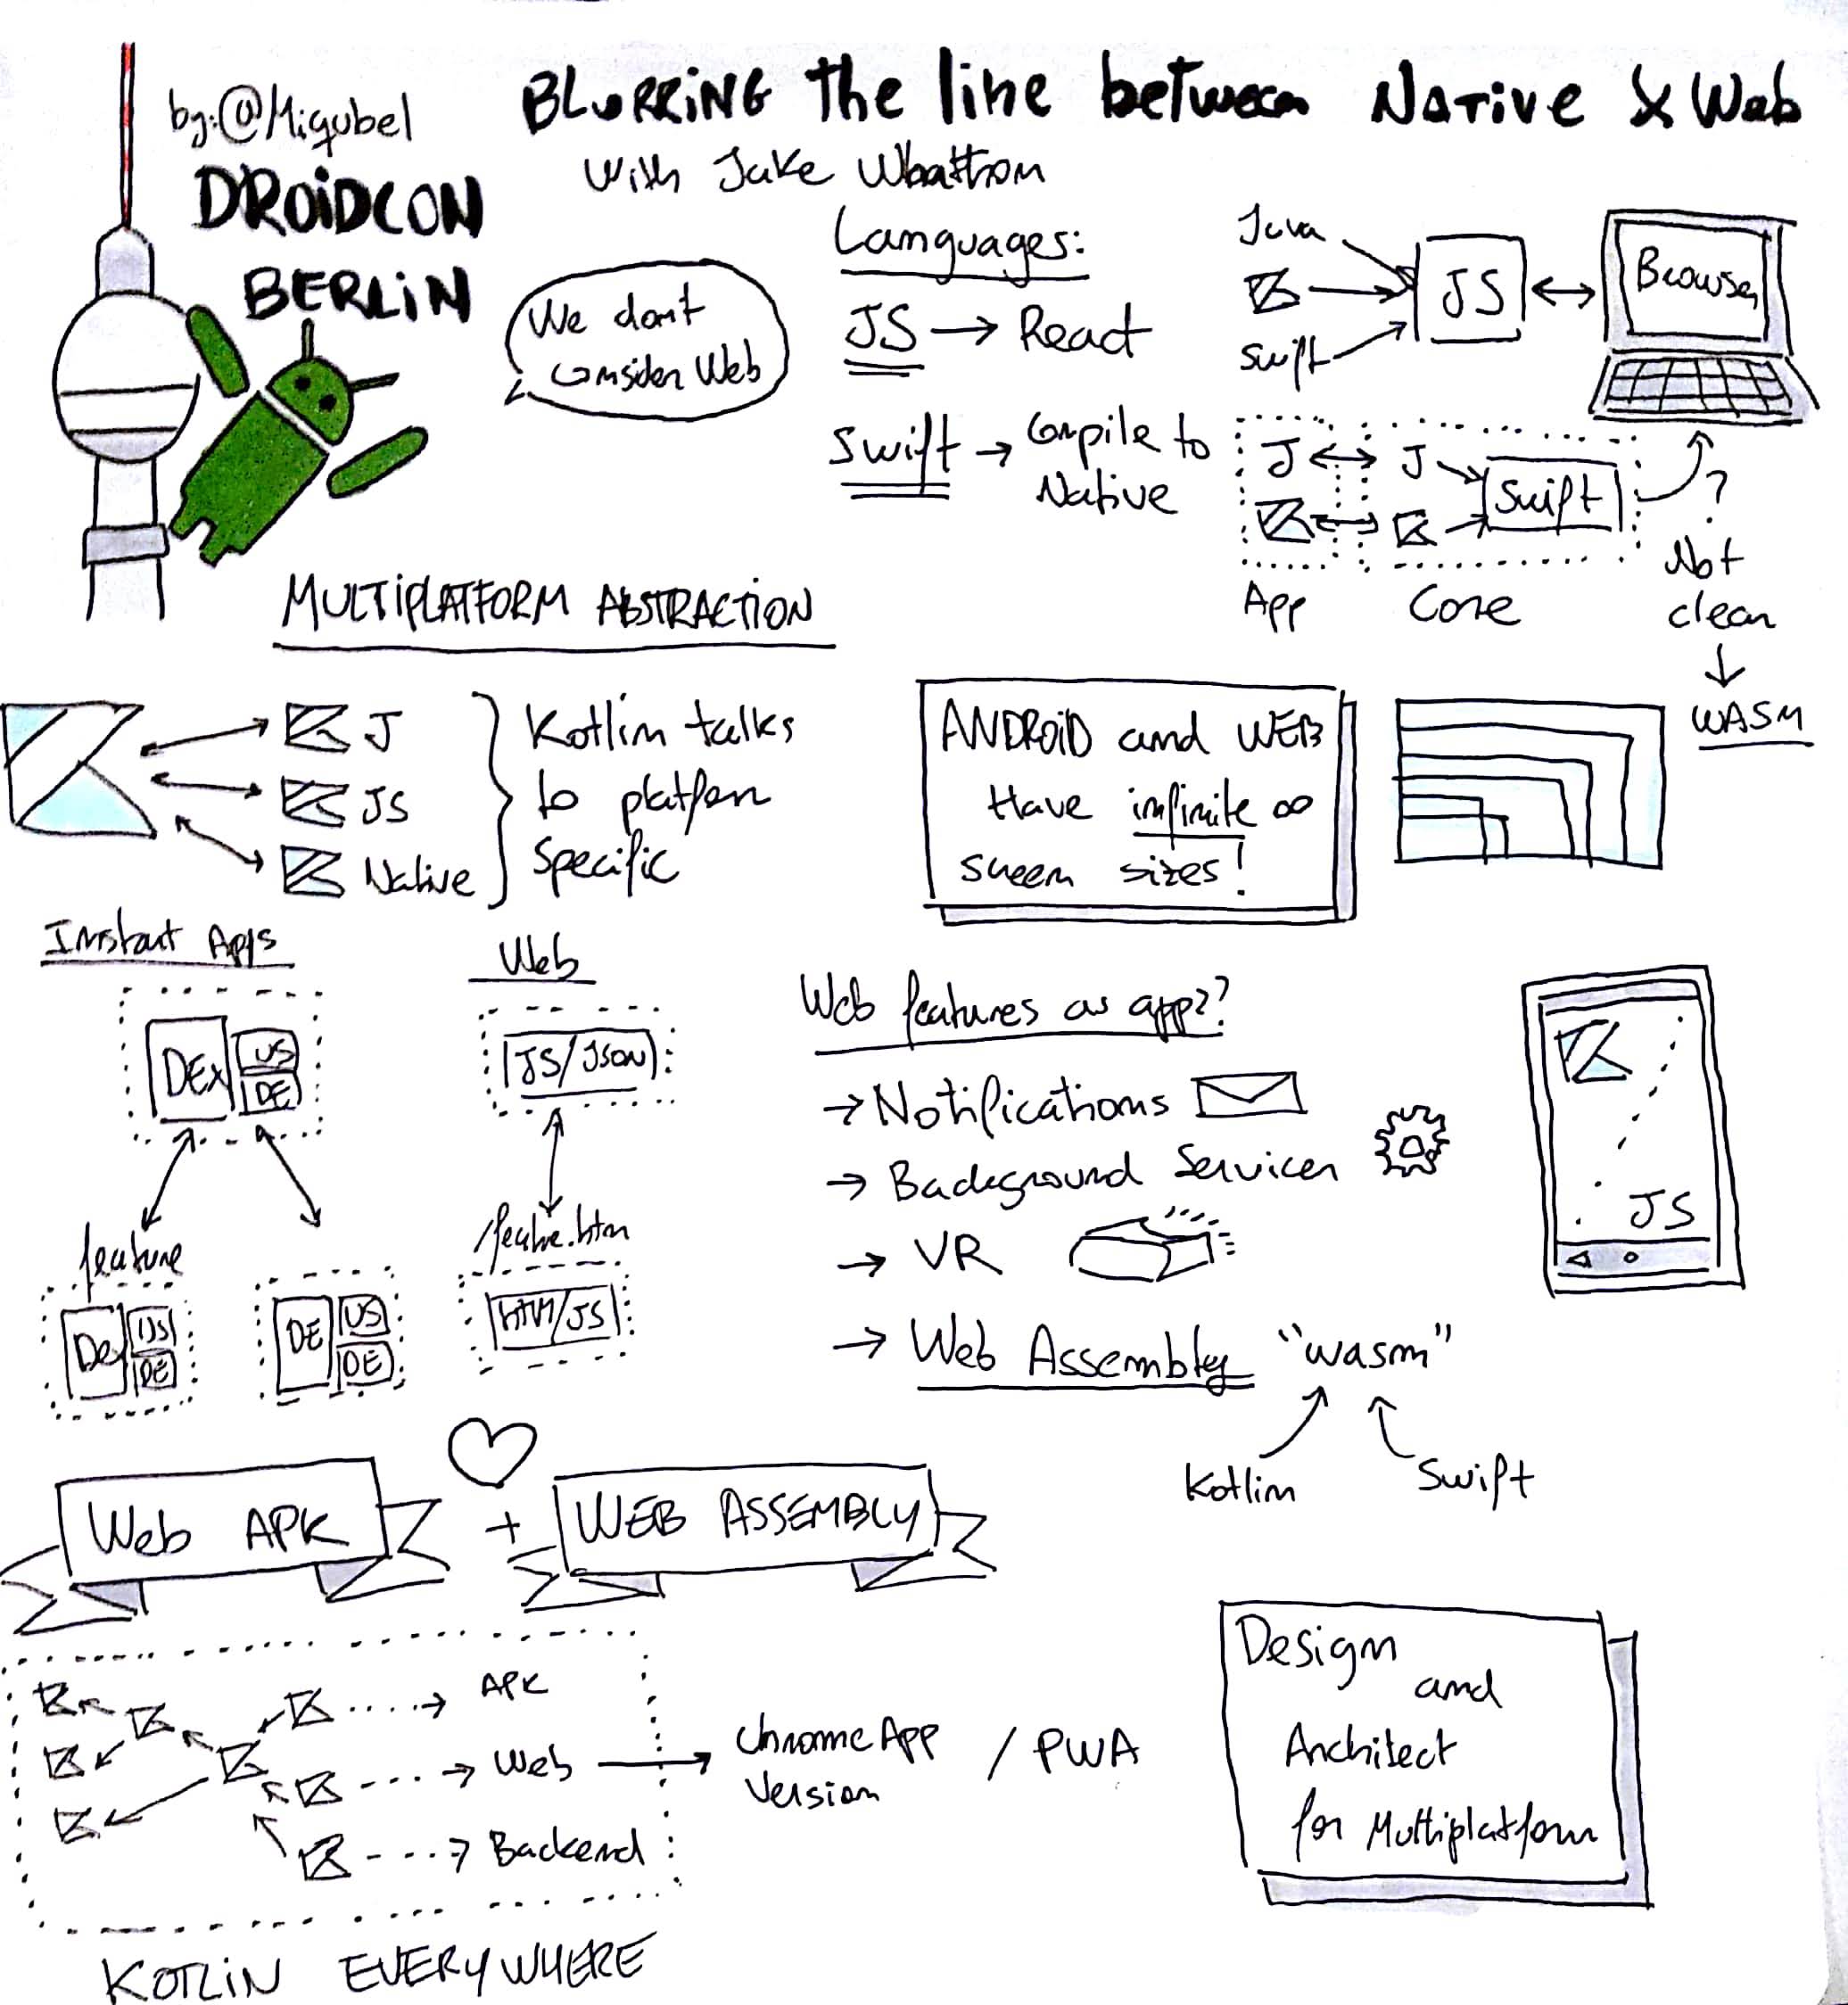 by:@Miqubel
DROIDCON
BERLIN
BLURRING the line between Native & Web
With Jake Whartton
We dont
consider Web
Languages:
JS → React
Swift → Compile to
Native
Java
Swift
JS
Browser
J ↔ J
Swift
?
App
Core
Not
clean
WASM
MULTIPLATFORM ABSTRACTION
J
JS
Native
Kotlin talks
to platform
Specific
ANDROID and WEB
Have infinite ∞
screen sizes!
Instant Apps
DEX
US
DE
feature
Dex
US
DE
DE
US
DE
Web
JS/JSON
/feature.htm
HTM/JS
Web features as app??
→ Notifications
→ Background Services
→ VR
→ Web Assembly "wasm"
Kotlin
Swift
JS
Web APK
+
WEB ASSEMBLY
APK
Web → Chrome App
Version
/ PWA
Backend
KOTLIN EVERYWHERE
Design
and
Architect
for Multiplatform